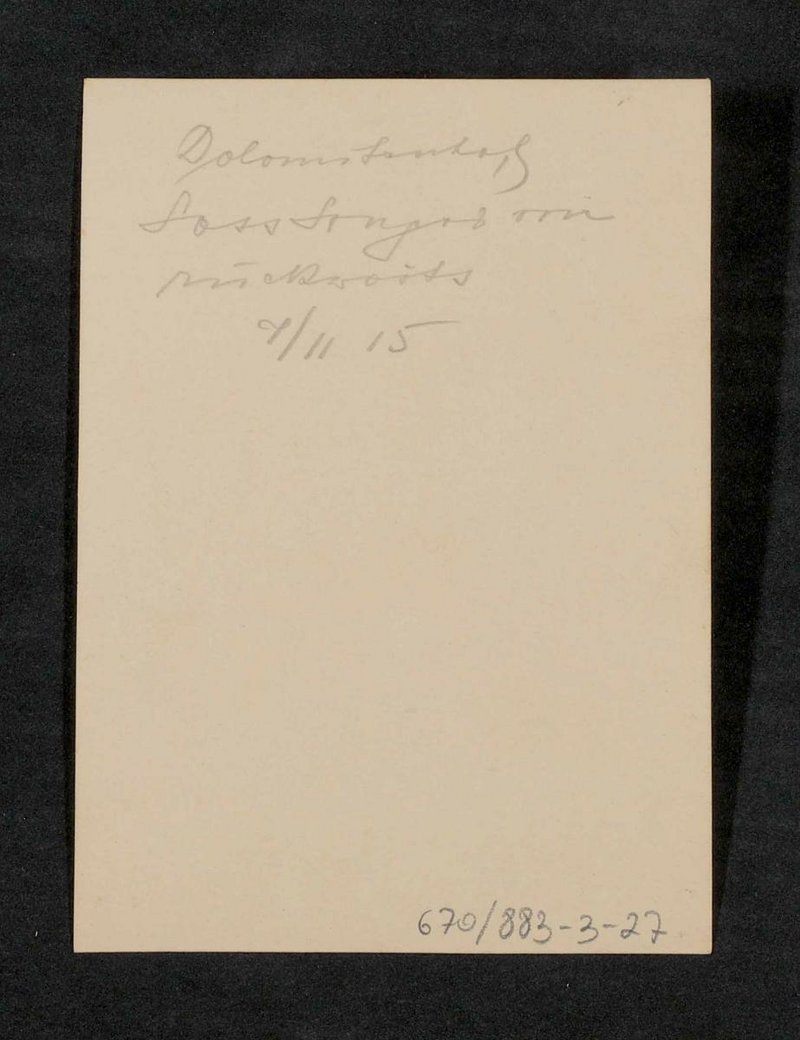 Dolomitenhof
Sass Songer von
rückwärts
7/11 15
670/883-3-27